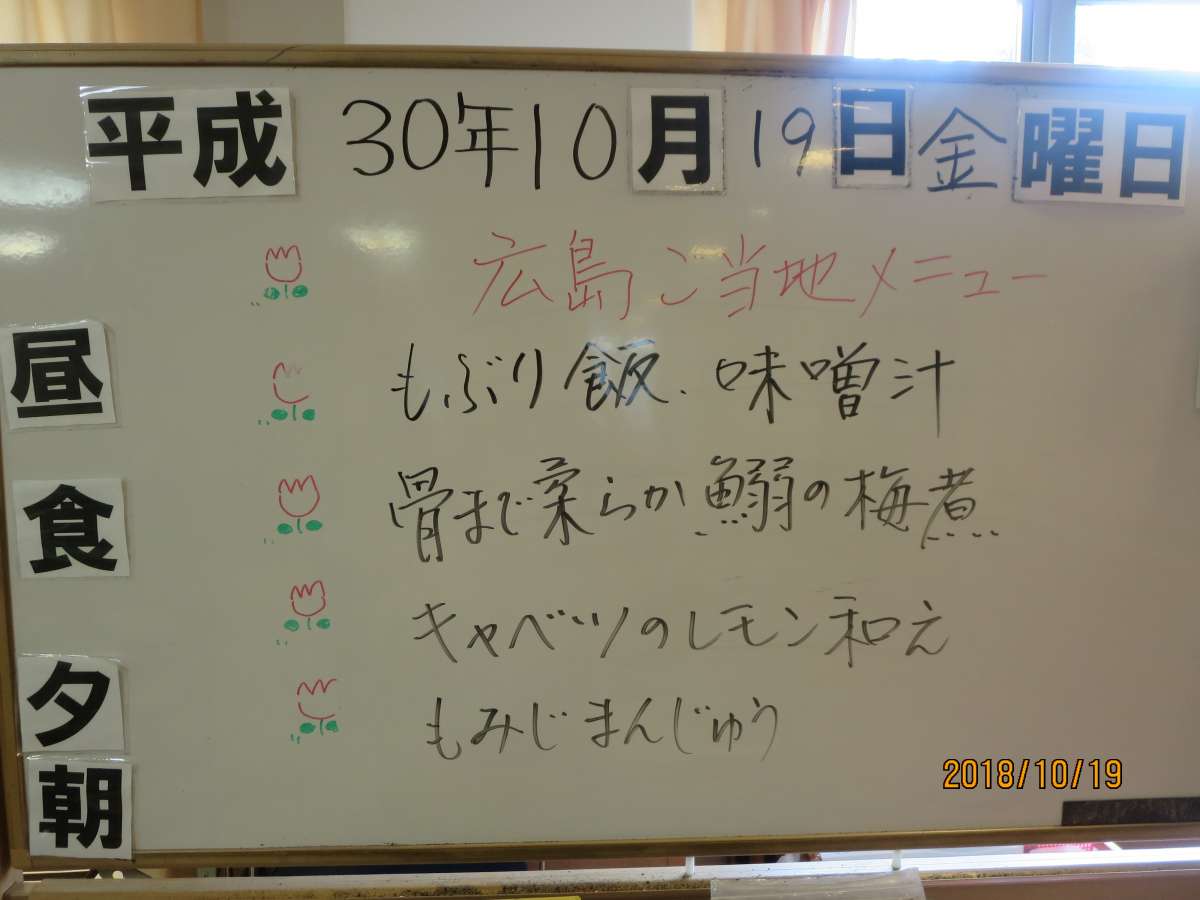 平成30年10月19日金曜日
広島ご当地メニュー
昼
もぶり飯、味噌汁
食
骨まで柔らか鰯の梅煮
キャベツのレモン和え
夕
もみじまんじゅう
朝
2018/10/19